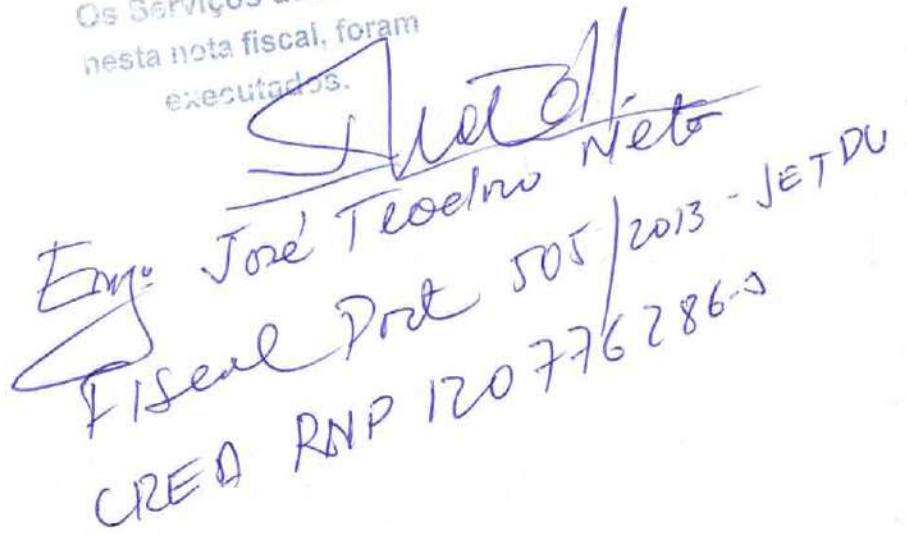 Os Serviços
nesta nota fiscal, foram
executados.
Engº José Teodoro Neto
Fiscal Port 505/2013 - JETDU
CREA RNP 120776286-